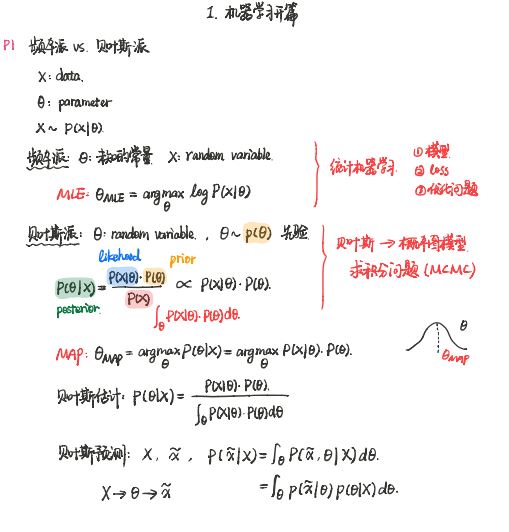 1. 机器学习开篇
P1 频率派 vs. 贝叶斯派
X: data.
θ: parameter
X ~ P(X|θ).
频率派: θ: 未知的常量 X: random variable.
MLE: θ_MLE = argmax_θ log P(X|θ)
统计机器学习 ① 模型
② loss
③ 优化问题
贝叶斯派: θ: random variable. , θ ~ p(θ) 先验
likelihood prior
P(θ|X) = P(X|θ)·P(θ) / P(X) ∝ P(X|θ)·P(θ).
posterior.
∫_θ P(X|θ)·P(θ)dθ.
贝叶斯 → 概率图模型
求积分问题 (MCMC)
MAP: θ_MAP = argmax_θ P(θ|X) = argmax_θ P(X|θ)·P(θ).
θ
θ_MAP
贝叶斯估计: P(θ|X) = P(X|θ)·P(θ). / ∫_θ P(X|θ)·P(θ)dθ
贝叶斯预测: X, x̃, P(x̃|X) = ∫_θ P(x̃,θ|X)dθ.
X → θ → x̃ = ∫_θ P(x̃|θ) p(θ|X) dθ.